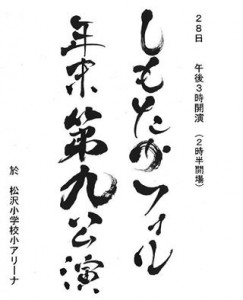 28日 午後3時開演(2時半開場)
しもたかフォル
年末第九公演
於 松沢小学校小アリーナ